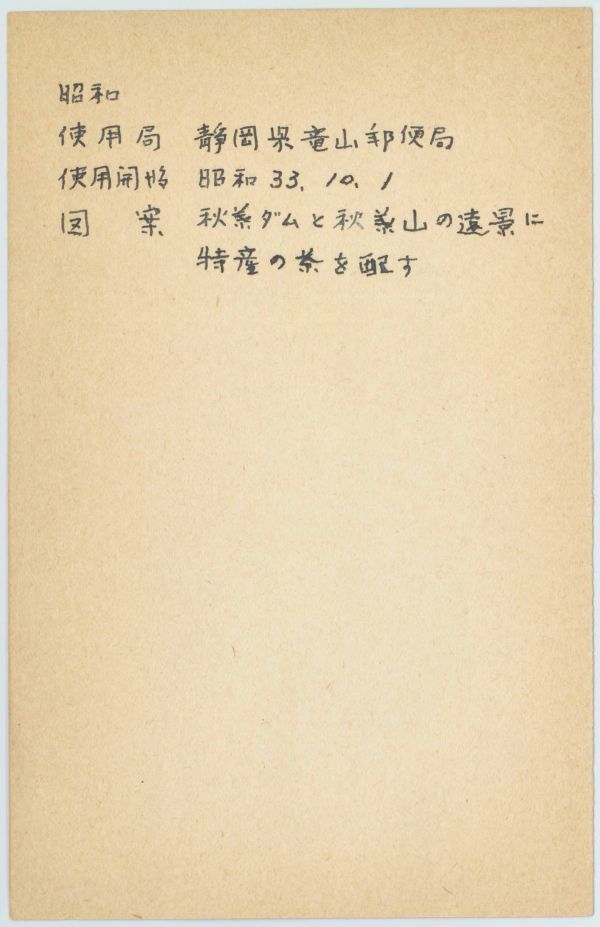 昭和
使用局 静岡県竜山郵便局
使用開始 昭和33.10.1
図案 秋葉ダムと秋葉山の遠景に
特産の茶を配す